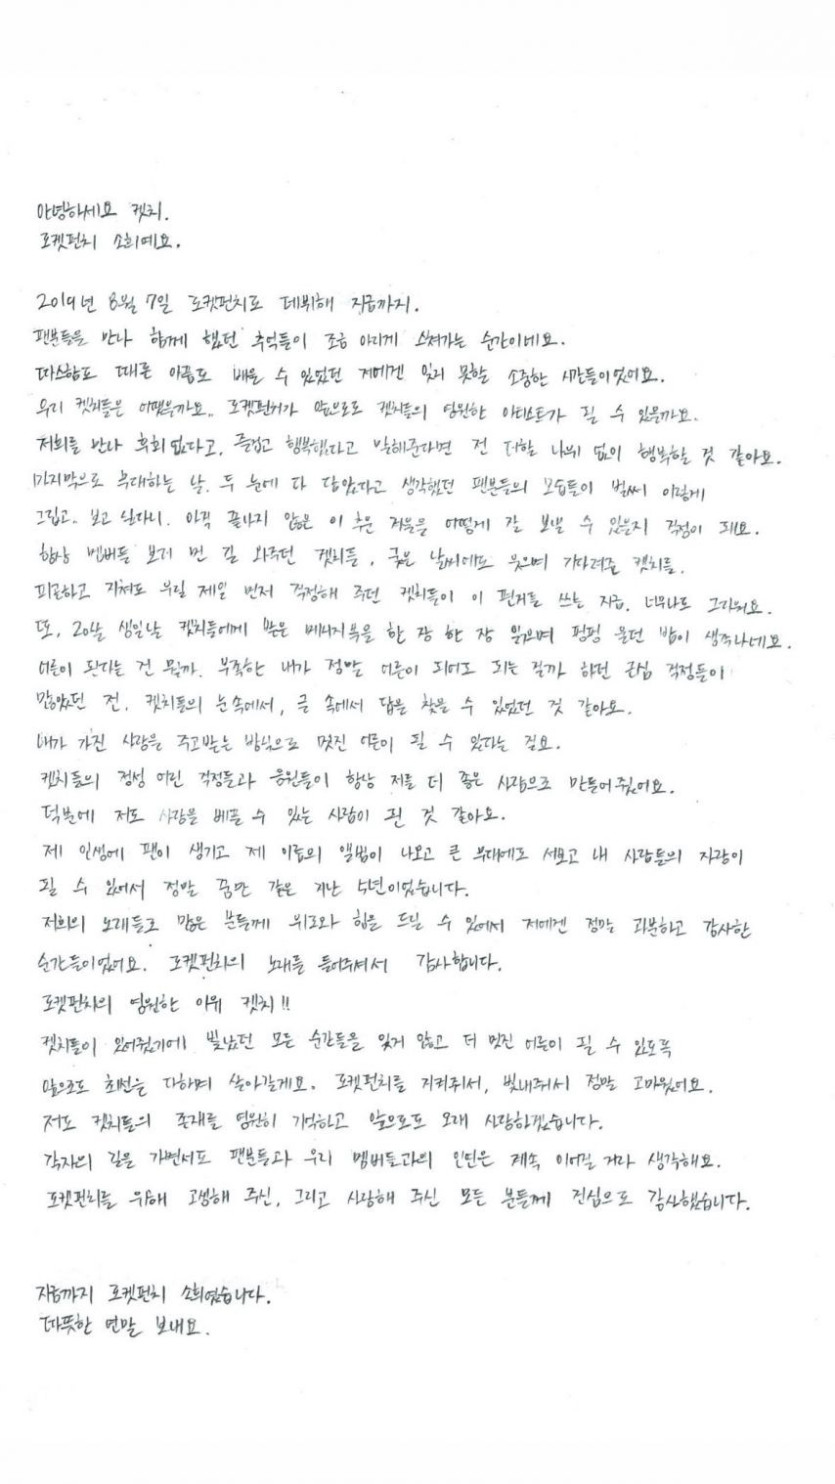 안녕하세요 켓치.
로켓펀치 소희예요.
2019년 8월 7일 로켓펀치로 데뷔해 지금까지.
팬분들을 만나 함께 했던 추억들이 조금 아리게 스쳐가는 순간이네요.
따스함도 때론 아픔도 배울 수 있었던 저에겐 잊지 못할 소중한 시간들이었어요.
우리 켓치들은 어땠을까요.. 로켓펀치가 앞으로도 켓치들의 영원한 아티스트가 될 수 있을까요.
저희를 만나 후회 없다고, 즐겁고 행복했다고 말해준다면 전 더할 나위 없이 행복할 것 같아요.
마지막으로 무대하는 날. 두 눈에 다 담았다고 생각했던 팬분들의 모습들이 벌써 이렇게
그립고. 보고 싶다니. 아직 끝나지 않은 이 추운 겨울을 어떻게 잘 보낼 수 있을지 걱정이 돼요.
항상 멤버들 보러 먼 길 와주던 켓치들, 궂은 날씨에도 웃으며 기다려준 켓치들.
피곤하고 지쳐도 우릴 제일 먼저 걱정해 주던 켓치들이 이 편지를 쓰는 지금. 너무나도 그리워요.
또, 20살 생일날 켓치들에게 받은 메시지북을 한 장 한 장 읽으며 펑펑 울던 밤이 생각나네요.
어른이 된다는 건 뭘까. 부족한 내가 정말 어른이 되어도 되는 걸까 하던 근심 걱정들이
많았던 전, 켓치들의 눈 속에서, 글 속에서 답을 찾을 수 있었던 것 같아요.
내가 가진 사랑을 주고받는 방식으로 멋진 어른이 될 수 있다는 걸요.
켓치들의 정성 어린 걱정들과 응원들이 항상 저를 더 좋은 사람으로 만들어 줬어요.
덕분에 저도 사랑을 베풀 수 있는 사람이 된 것 같아요.
제 인생에 팬이 생기고 제 이름의 앨범이 나오고 큰 무대에도 서보고 내 사람들의 자랑이
될 수 있어서 정말 꿈만 같은 지난 5년이었습니다.
저희의 노래들로 많은 분들께 위로와 힘을 드릴 수 있어서 저에겐 정말 과분하고 감사한
순간들이었어요. 로켓펀치의 노래를 들어주셔서 감사합니다.
로켓펀치의 영원한 아워 켓치!!
켓치들이 있어줬기에 빛났던 모든 순간들을 잊지 않고 더 멋진 어른이 될 수 있도록
앞으로도 최선을 다하며 살아갈게요. 로켓펀치를 지켜줘서, 빛내줘서 정말 고마웠어요.
저도 켓치들의 존재를 영원히 기억하고 앞으로도 오래 사랑하겠습니다.
각자의 길을 가면서도 팬분들과 우리 멤버들과의 인연은 계속 이어질 거라 생각해요.
로켓펀치를 위해 고생해 주신, 그리고 사랑해 주신 모든 분들께 진심으로 감사했습니다.
지금까지 로켓펀치 소희였습니다.
따뜻한 연말 보내요.